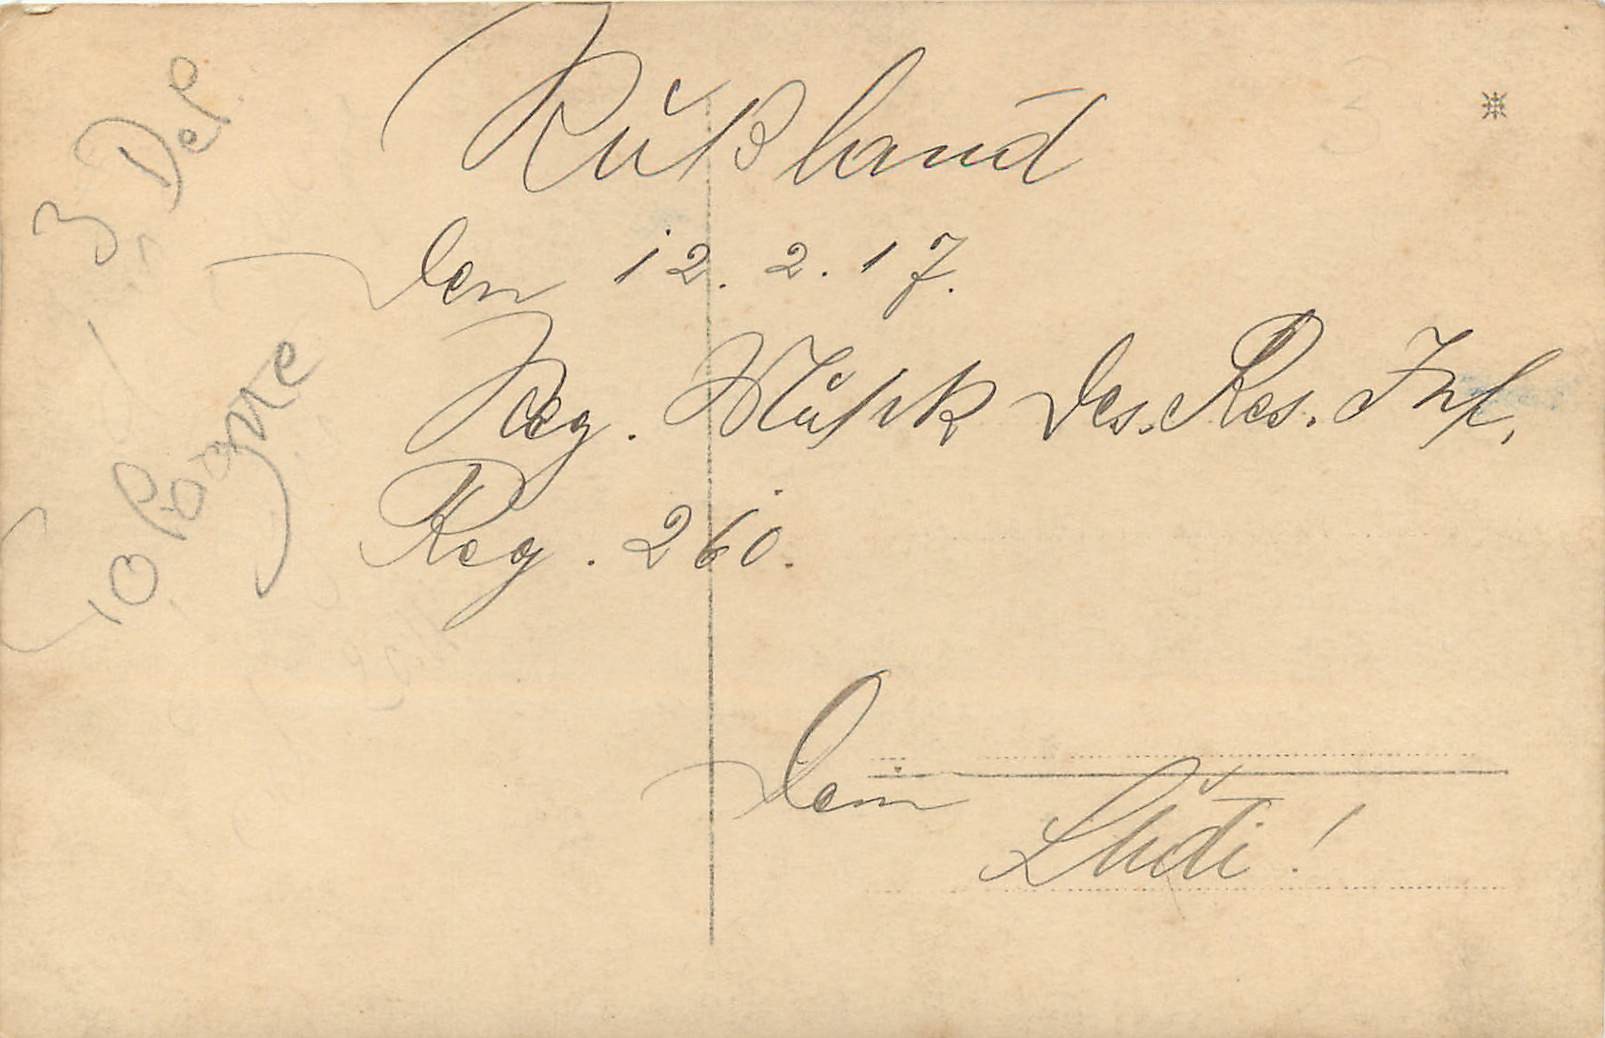 Rußland
den 12. 2. 17.
Reg. Musik des. Res. Inf.
Reg. 260.
Dein
Ludi!
3 Del
Cologne